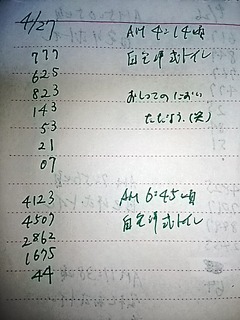 4/27
AM 4:14頃
777
自宅洋式トイレ
625
823
おしっこのにおい
143
ただよう。(笑)
53
21
07
4123
AM 6:45頃
4507
自宅洋式トイレ
2862
1675
44